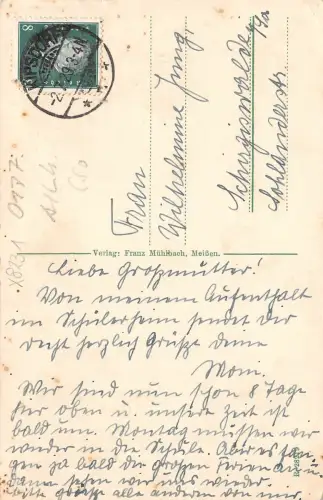 8
Frau
Wilhelmine Jung,
Schirgiswalde i/Sa
Verlag: Franz Mühlbach, Meißen.
Liebe Großmutter!
Von meinem Aufenthalt
im Schülerheim sendet Dir
recht herzlich Grüße
Wir sind nun schon 8 Tage
hier oben u. unsere Zeit ist
bald um. Montag müssen wir
wieder in die Schule. Aber es fan-
gen ja bald die großen Ferien an u.
dann sehen wir uns wieder.
Bitte grüße alle andern von mir